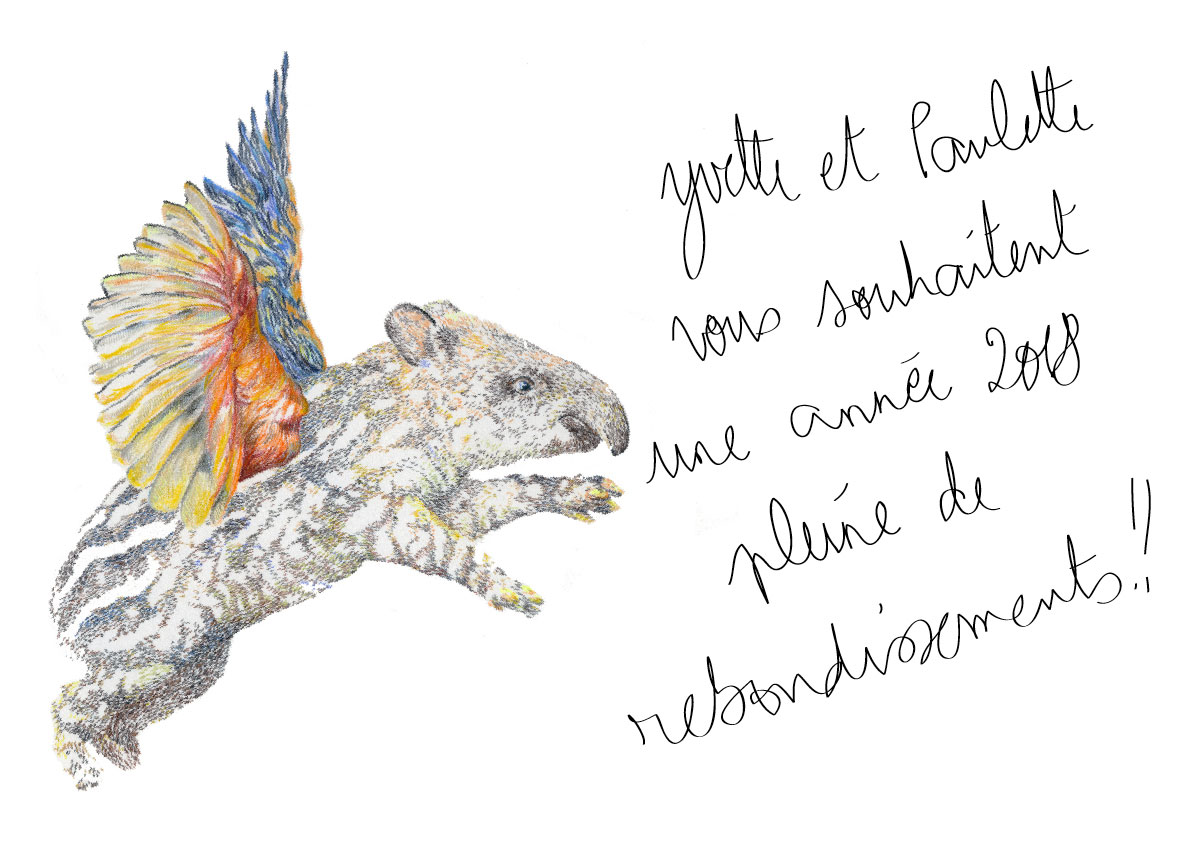 yvette et Paulette
vous souhaitent
une année 2018
pleine de
rebondissements!!